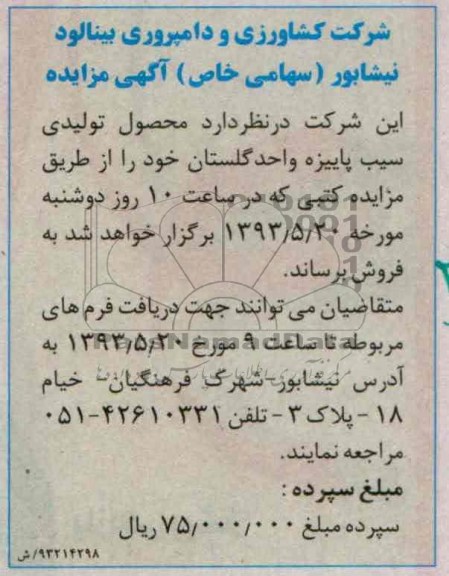 شرکت کشاورزی و دامپروری بینالود
نیشابور (سهامی خاص) آگهی مزایده
این شرکت درنظردارد محصول تولیدی
سیب پاییزه واحدگلستان خود را از طریق
مزایده کتبی که در ساعت ۱۰ روز دوشنبه
مورخه ۱۳۹۳/۵/۲۰ برگزار خواهد شد به
فروش برساند.
متقاضیان می توانند جهت دریافت فرم های
مربوطه تا ساعت ۹ مورخ ۱۳۹۳/۵/۲۰ به
آدرس نیشابور شهرک فرهنگیان خیام
۱۸ - پلاک ۳ - تلفن ۴۲۶۱۰۳۳۱-۰۵۱
مراجعه نمایند.
مبلغ سپرده :
سپرده مبلغ ۷۵/۰۰۰/۰۰۰ ریال
۹۳۲۱۴۲۹۸/ش